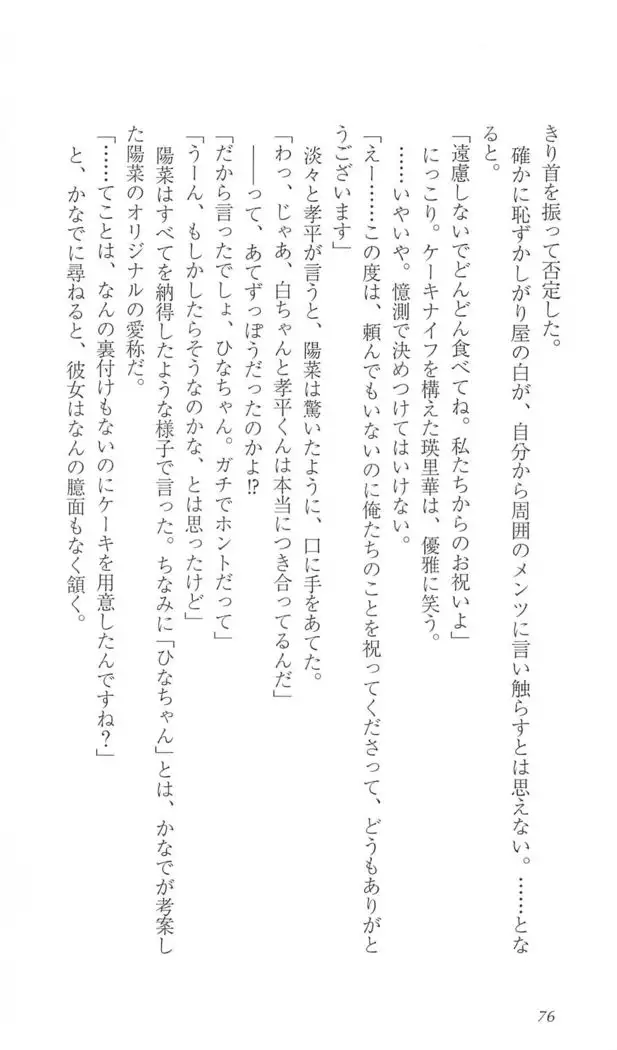 きり首を振って否定した。
　確かに恥ずかしがり屋の白が、自分から周囲のメンツに言い触らすとは思えない。……とな
ると。
「遠慮しないでどんどん食べてね。私たちからのお祝いよ」
　にっこり。ケーキナイフを構えた瑛里華は、優雅に笑う。
　……いやいや。憶測で決めつけてはいけない。
「えー……この度は、頼んでもいないのに俺たちのことを祝ってくださって、どうもありがと
うございます」
　淡々と孝平が言うと、陽菜は驚いたように、口に手をあてた。
「わっ、じゃあ、白ちゃんと孝平くんは本当につき合ってるんだ」
　――って、あてずっぽうだったのかよ!?
「だから言ったでしょ、ひなちゃん。ガチでホントだって」
「うーん、もしかしたらそうなのかな、とは思ったけど」
　陽菜はすべてを納得したような様子で言った。ちなみに「ひなちゃん」とは、かなでが考案し
た陽菜のオリジナルの愛称だ。
「……てことは、なんの裏付けもないのにケーキを用意したんですね？」
　と、かなでに尋ねると、彼女はなんの臆面もなく頷く。
76